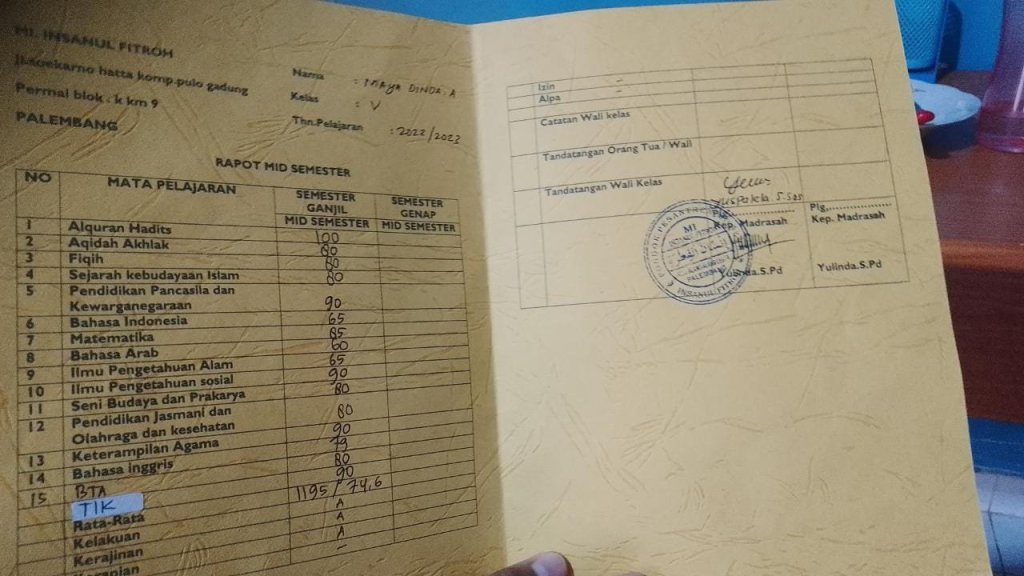 MI. INSANUL FITROH
Jl.soekarno hatta komp.pulo gadung
Permai blok : k km 9
PALEMBANG
Nama : MAYA DINDA. A
Kelas : V
Thn.Pelajaran : 2022/2023
RAPOT MID SEMESTER
NO MATA PELAJARAN SEMESTER GANJIL SEMESTER GENAP
MID SEMESTER MID SEMESTER
1 Alquran Hadits 100
2 Aqidah Akhlak 80
3 Fiqih 80
4 Sejarah kebudayaan Islam 80
5 Pendidikan Pancasila dan
Kewarganegaraan 90
6 Bahasa Indonesia 65
7 Matematika 85
8 Bahasa Arab 60
9 Ilmu Pengetahuan Alam 65
10 Ilmu Pengetahuan sosial 90
11 Seni Budaya dan Prakarya 80
12 Pendidikan Jasmani dan
Olahraga dan kesehatan 80
13 Keterampilan Agama 90
14 Bahasa inggris 79
15 BTA 80
TIK 90
Rata-Rata 1195 / 74,6
Kelakuan A
Kerajinan A
Kerapian A
-
Izin -
Alpa -
Catatan Wali kelas
Tandatangan Orang Tua / Wali
Tandatangan Wali Kelas
Kep. Madrasah
Yulinda.S.Pd
Plg,
Kep. Madrasah
Yulinda.S.Pd
MI
PALEMBANG
INSANUL FITROH